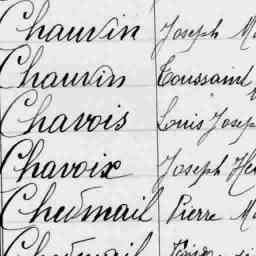 Chauvin Joseph Ma
Chauvin Toussaint
Chavois Louis Josep
Chavoix Joseph Hen
Chedmail Pierre Ma
Chedmail